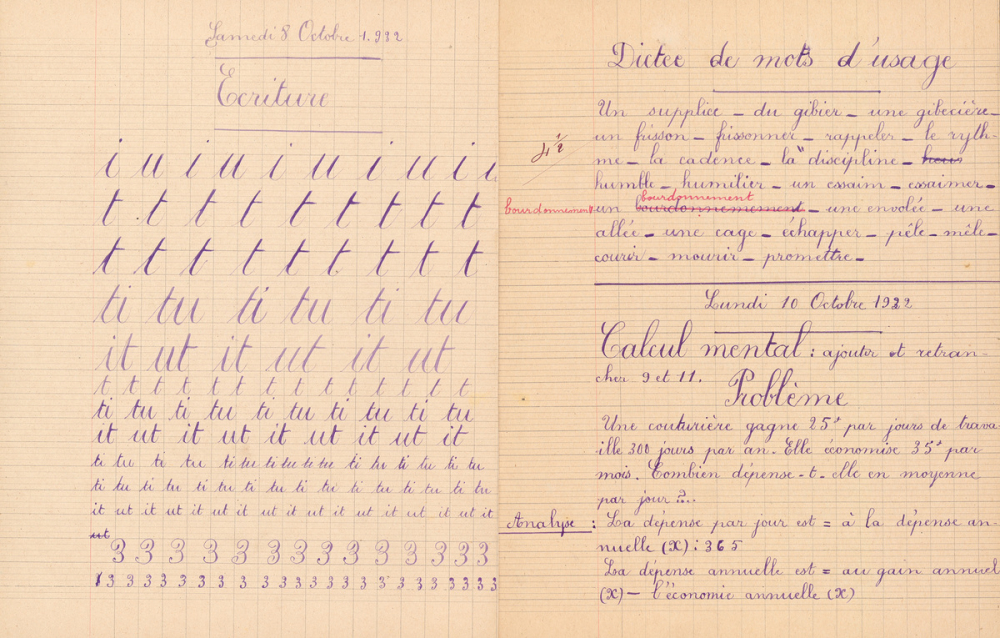 Samedi 8 Octobre 1.932
Ecriture
i u i u i u i u i
t t t t t t t t t
t t t t t t t t t
ti tu ti tu ti tu
it ut it ut it ut
t t t t t t t t t t t t t t
ti tu ti tu ti tu ti tu ti tu
it ut it ut it ut it ut it
ti tu ti tu ti tu ti tu ti tu ti tu ti tu ti tu
ti tu ti tu ti tu ti tu ti tu ti tu ti tu ti tu
it ut it ut it ut it ut it ut it ut it ut it
ut
3 3 3 3 3 3 3 3 3 3 3 3 3 3
1 3 3 3 3 3 3 3 3 3 3 3 3 3 3 3 3 3 3 3
Dictee de mots d'usage
Un supplice - du gibier - une gibecière -
un frisson - frissonner - rappeler - le ryth-
4 1/2
me - la cadence - la "discipline -
humble - humilier - un essaim - essaimer -
bourdonnement
bourdonnement un bourdonnemement - une envolée - une
allée - une cage - échapper - pêle - mêle -
courir - mourir - promettre -
Lundi 10 Octobre 1932
Calcul mental : ajouter et retran-
cher 9 et 11.
Problème
Une couturière gagne 25f par jours de trava-
ille 300 jours par an. Elle économise 35f par
mois. Combien dépense-t-elle en moyenne
par jour ?..
Analyse : La dépense par jour est = à la dépense an-
nuelle (x) : 365
La dépense annuelle est = au gain annuel
(x) - l'économie annuelle (x)